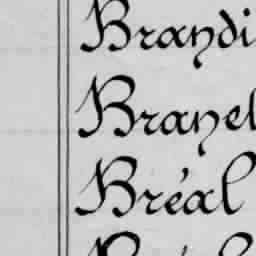 Brandi
Branel
Bréal